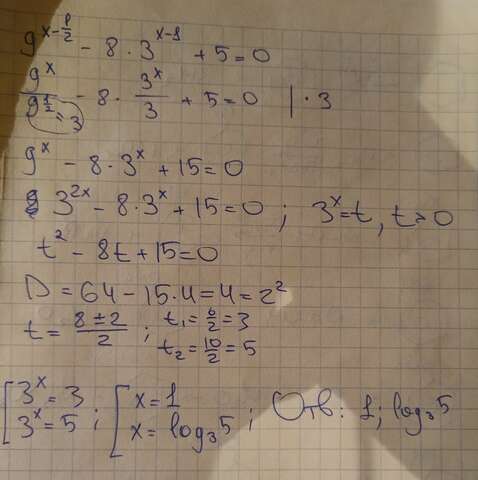 9^(x-1/2) - 8 · 3^(x-1) + 5 = 0
9^x/9^(1/2) - 8 · 3^x/3 + 5 = 0 | · 3
= 3
9^x - 8 · 3^x + 15 = 0
3^(2x) - 8 · 3^x + 15 = 0 ; 3^x = t, t > 0
t² - 8t + 15 = 0
D = 64 - 15 · 4 = 4 = 2²
t = (8 ± 2)/2 ; t₁ = 6/2 = 3
t₂ = 10/2 = 5
[ 3^x = 3 ; [ x = 1 ; Отв: 1; log₃5
3^x = 5 x = log₃5